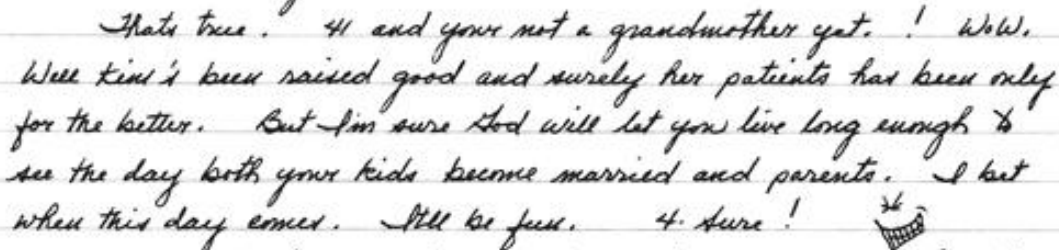 Thats true. 41 and your not a grandmother yet. ! WoW.
Well Kim's been raised good and surely her patients has been only
for the better. But I'm sure God will let you live long enough to
see the day both your kids become married and parents. I bet
when this day comes. Itll be fun. 4. Sure!